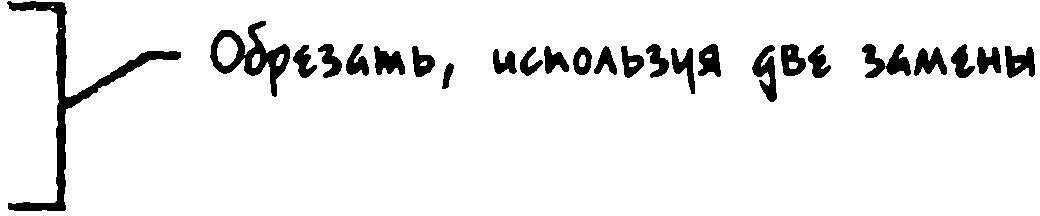 Обрезать, используя две замены